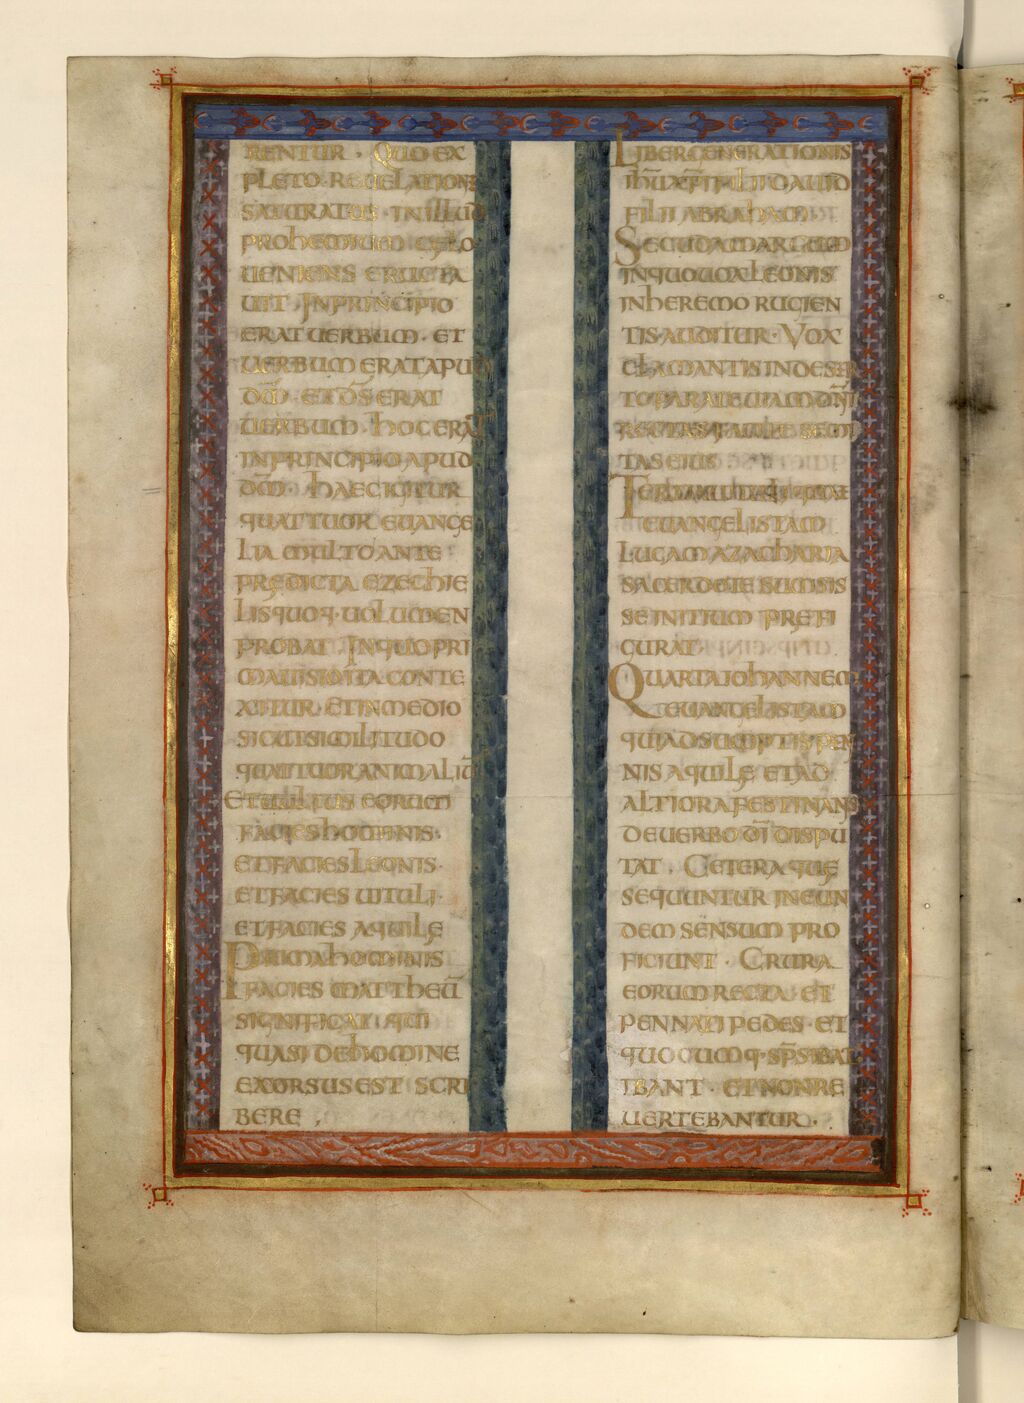 RENTUR · QUO EX
PLETO · REVELATIONE
SATURATUS · IN ILLUD
PROHEMIUM CELO
UENIENS ERUCTA
UIT · IN PRINCIPIO
ERAT UERBUM · ET
UERBUM ERAT APUD
DM̄ · ET DS̄ ERAT
UERBUM · HOC ERAT
IN PRINCIPIO APUD
DM̄ · HAEC IGITUR
QUATTUOR EUANGE
LIA MULTO ANTE
PREDICTA EZECHIE
LIS QUOQ· UOLUMEN
PROBAT · IN QUO PRI
MA UISIO ITA CONTE
XITUR · ET IN MEDIO
SICUT SIMILITUDO
QUATTUOR ANIMALIŪ
ET UULTUS EORUM
FACIES HOMINIS ·
ET FACIES LEONIS ·
ET FACIES UITULI ·
ET FACIES AQUILE
PRIMA HOMINIS
FACIES MATTHEŪ
SIGNIFICAT · QUI
QUASI DE HOMINE
EXORSUS EST SCRI
BERE
LIBER GENERATIONIS
IHŪ XPĪ FILII DAUID
FILII ABRAHAM
SECUNDA MARCUM
IN QUO UOX LEONIS
IN HEREMO RUGIEN
TIS AUDITUR · VOX
CLAMANTIS IN DESER
TO PARATE UIAM DN̄I
RECTAS FACITE SEMI
TAS EIUS
TERTIA UITULI QUAE
EUANGELISTAM
LUCAM A ZACHARIA
SACERDOTE SUMSIS
SE INITIUM PREFI
GURAT
QUARTA IOHANNEM
EUANGELISTAM
QUI ADSUMPTIS PEN
NIS AQUILE ET AD
ALTIORA FESTINANS
DE UERBO DĪ DISPU
TAT · CETERA QUE
SEQUUNTUR IN EUN
DEM SENSUM PRO
FICIUNT · CRURA
EORUM RECTA · ET
PENNATI PEDES · ET
QUOCUMQ· SPS̄ IBAT
IBANT · ET NON RE
UERTEBANTUR ·